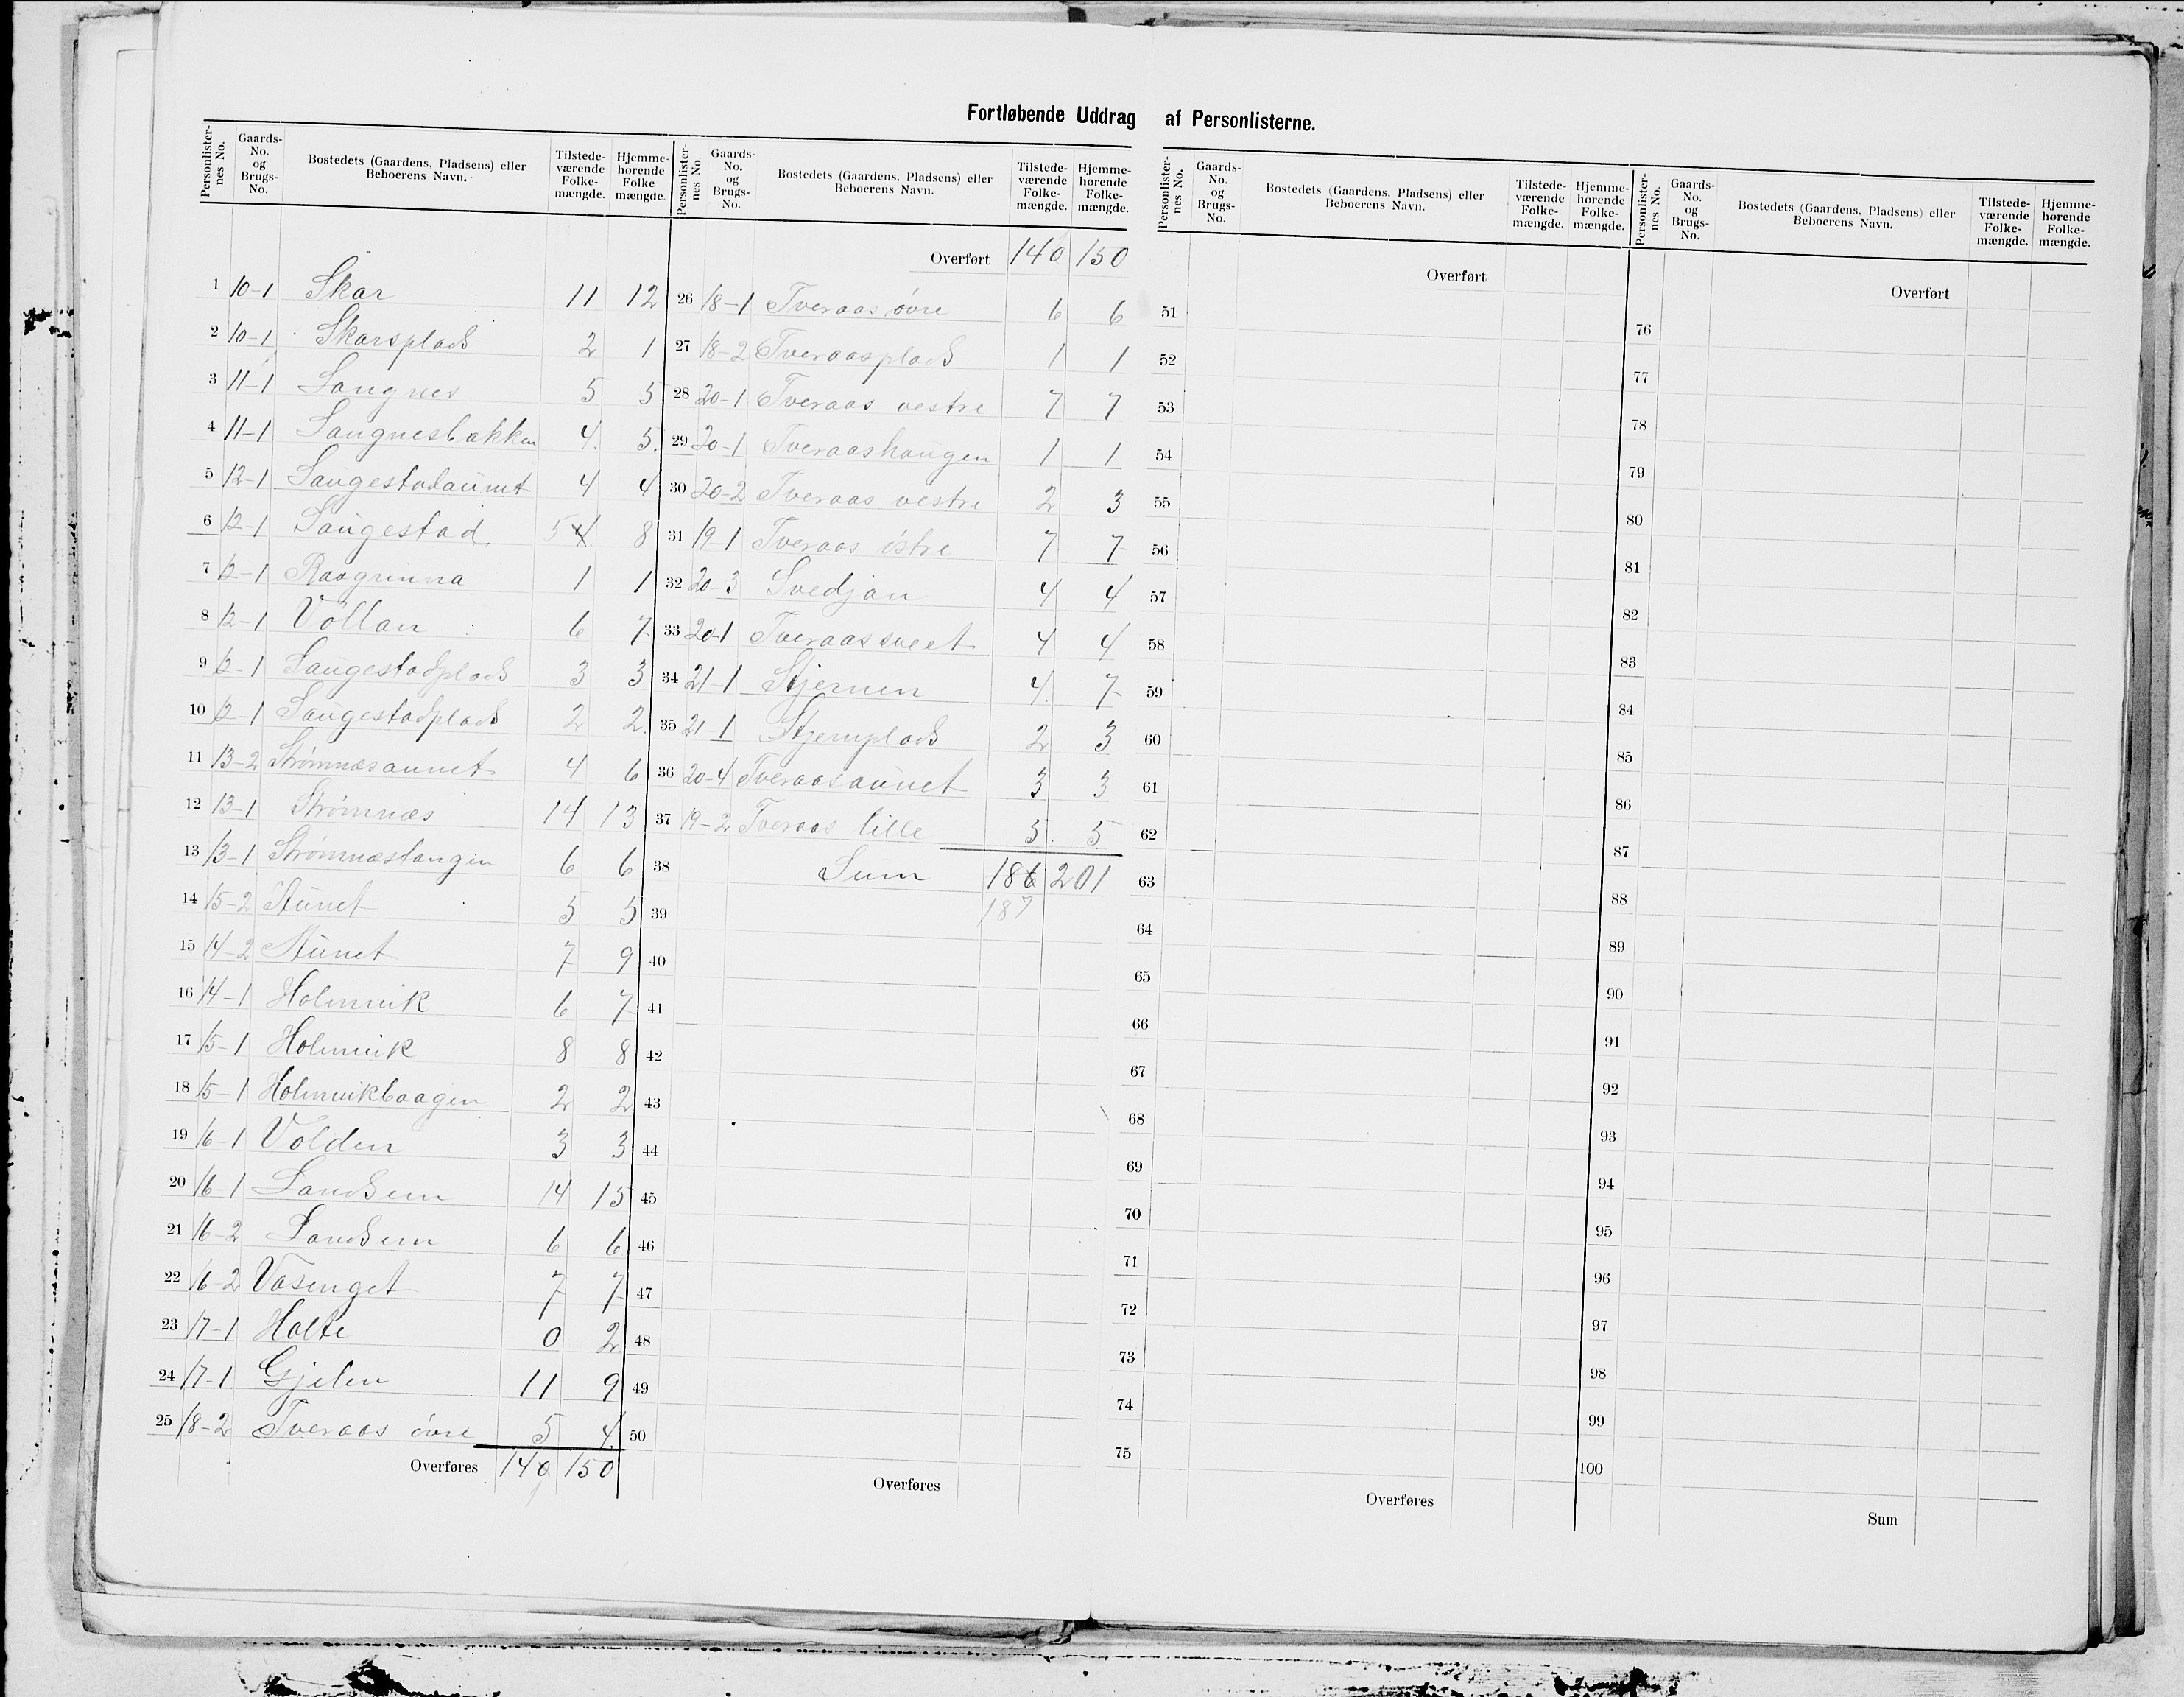 Fortløbende Uddrag af Personlisterne.
Personlister-nes No. Gaards-No. og Brugs-No. Bostedets (Gaardens, Pladsens) eller Beboerens Navn. Tilstede-værende Folke-mængde. Hjemme-hørende Folke mængde.
1 10-1 Skar 11 12
2 10-1 Skarsplads 2 1
3 11-1 Saugnes 5 5
4 11-1 Saugnesbakken 4 5
5 12-1 Saugestadaunet 4 4
6 12-1 Saugestad 5 4 8
7 12-1 Raagrinna 1 1
8 12-1 Vollan 6 7
9 12-1 Saugestadplads 3 3
10 12-1 Saugestadplads 2 2
11 13-2 Strømnæsaunet 4 6
12 13-1 Strømnæs 14 13
13 13-1 Strømnæstangen 6 6
14 15-2 Aunet 5 5
15 14-2 Aunet 7 9
16 14-1 Holmvik 6 7
17 15-1 Holmvik 8 8
18 15-1 Holmvikbaagen 2 2
19 16-1 Volden 3 3
20 16-1 Landsem 14 15
21 16-2 Landsem 6 6
22 16-2 Vasenget 7 7
23 17-1 Holte 0 2
24 17-1 Gjelen 11 9
25 18-2 Tveraas övre 5 4
Overføres 140 150
1
Personlister-nes No. Gaards-No. og Brugs-No. Bostedets (Gaardens, Pladsens) eller Beboerens Navn. Tilstede-værende Folke-mængde. Hjemme-hørende Folke-mængde.
Overført 140 150
26 18-1 Tveraas övre 6 6
27 18-2 Tveraasplads 1 1
28 20-1 Tveraas vestre 7 7
29 20-1 Tveraashaugen 1 1
30 20-2 Tveraas vestre 2 3
31 19-1 Tveraas östre 7 7
32 20-3 Svedjan 4 4
33 20-1 Tveraassveet 4 4
34 21-1 Stjernen 4 7
35 21-1 Stjernplads 2 3
36 20-4 Tveraasaunet 3 3
37 19-2 Tveraas lille 5 5
38 Sum 186 201
39 187
40
41
42
43
44
45
46
47
48
49
50
Overføres
Personlister-nes No. Gaards-No. og Brugs-No. Bostedets (Gaardens, Pladsens) eller Beboerens Navn. Tilstede-værende Folke-mængde. Hjemme-hørende Folke-mængde.
Overført
51
52
53
54
55
56
57
58
59
60
61
62
63
64
65
66
67
68
69
70
71
72
73
74
75
Overføres
Personlister-nes No. Gaards-No. og Brugs-No. Bostedets (Gaardens, Pladsens) eller Beboerens Navn. Tilstede-værende Folke-mængde. Hjemme-hørende Folke-mængde.
Overført
76
77
78
79
80
81
82
83
84
85
86
87
88
89
90
91
92
93
94
95
96
97
98
99
100
Sum